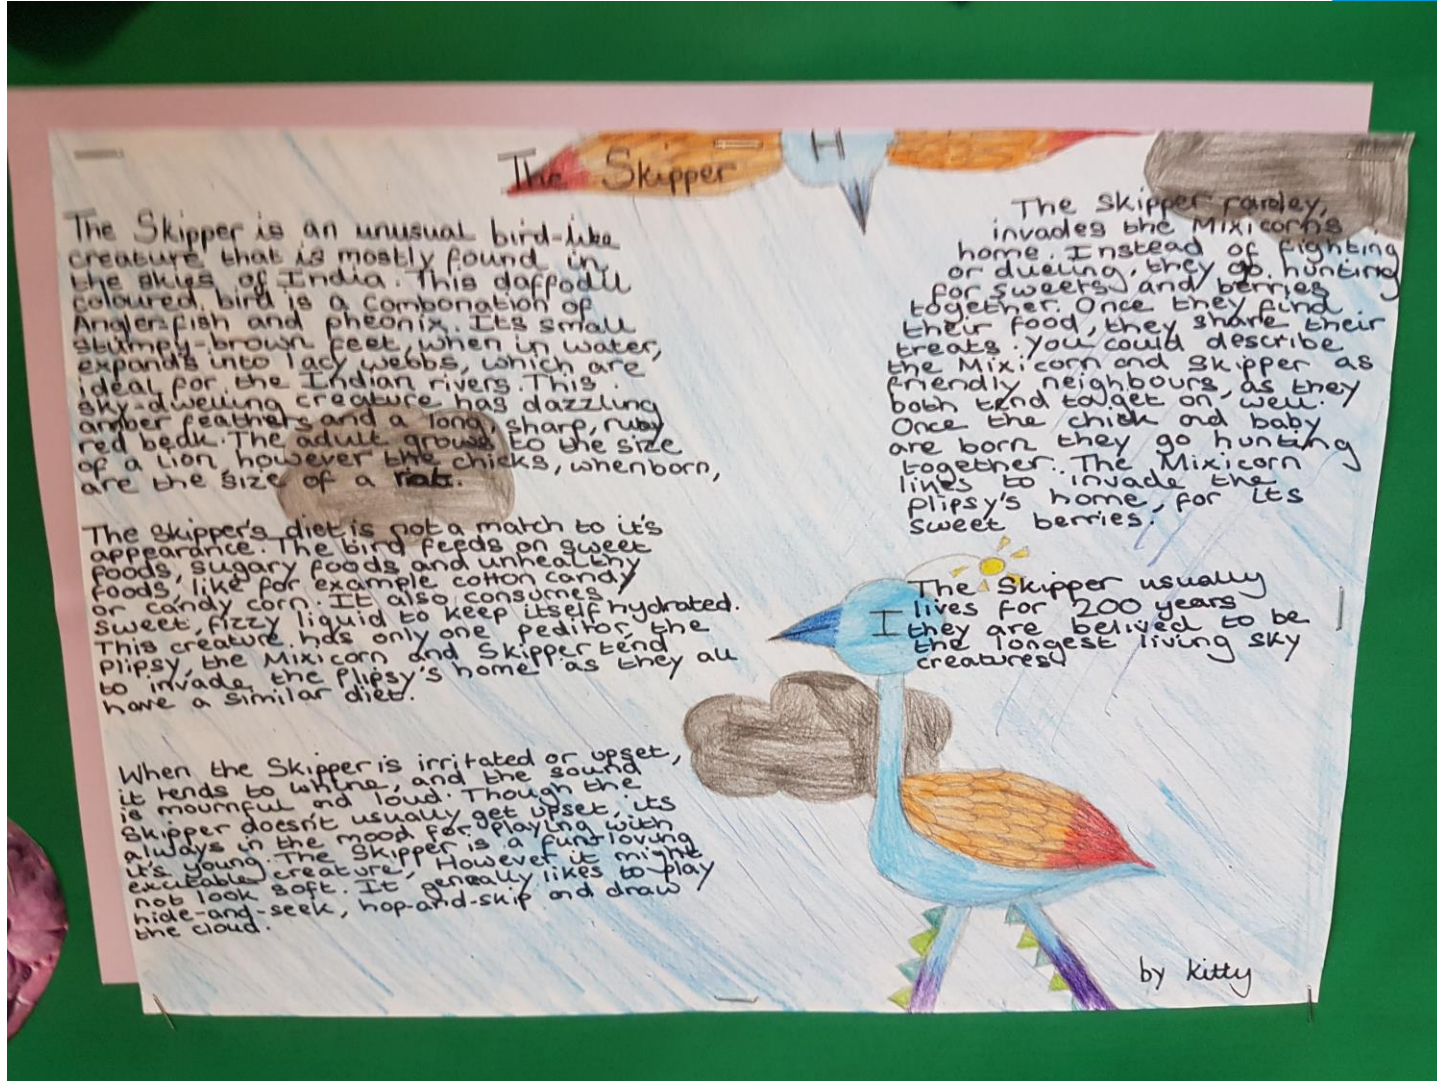 The Skipper
The Skipper is an unusual bird-like
creature that is mostly found in
the skies of India. This daffodil
coloured bird is a combonation of
Angler-fish and pheonix. Its small
stumpy-brown feet, when in water,
expands into lacy webbs, which are
ideal for the Indian rivers. This
sky-dwelling creature has dazzling
amber feathers and a long, sharp, ruby
red beak. The adult grows to the size
of a lion, however the chicks, when born,
are the size of a rat.
The Skipper's diet is not a match to it's
appearance. The bird feeds on sweet
foods, sugary foods and unhealthy
foods, like for example cotton candy
or candy corn. It also consumes
sweet, fizzy liquid to keep itself hydrated.
This creature has only one peditor, the
Plipsy, the Mixicorn and Skipper tend
to invade the Plipsy's home as they all
have a similar diet.
When the Skipper is irritated or upset,
it tends to whine, and the sound
is mournful and loud. Though the
Skipper doesn't usually get upset, its
always in the mood for playing with
it's young. The Skipper is a fun-loving
excitable creature, However it might
not look soft. It genrally likes to play
hide-and-seek, hop-and-skip and draw
the cloud.
The Skipper rarely,
invades the Mixicorns
home. Instead of fighting
or dueling, they go hunting
for sweets and berries
together. Once they find
their food, they share their
treats. You could describe
the Mixicorn and Skipper as
friendly neighbours, as they
both tend to get on well.
Once the chick and baby
are born they go hunting
together. The Mixicorn
likes to invade the
plipsy's home, for its
sweet berries.
The Skipper usually
lives for 200 years
they are belived to be
the longest living sky
creatures
by Kitty